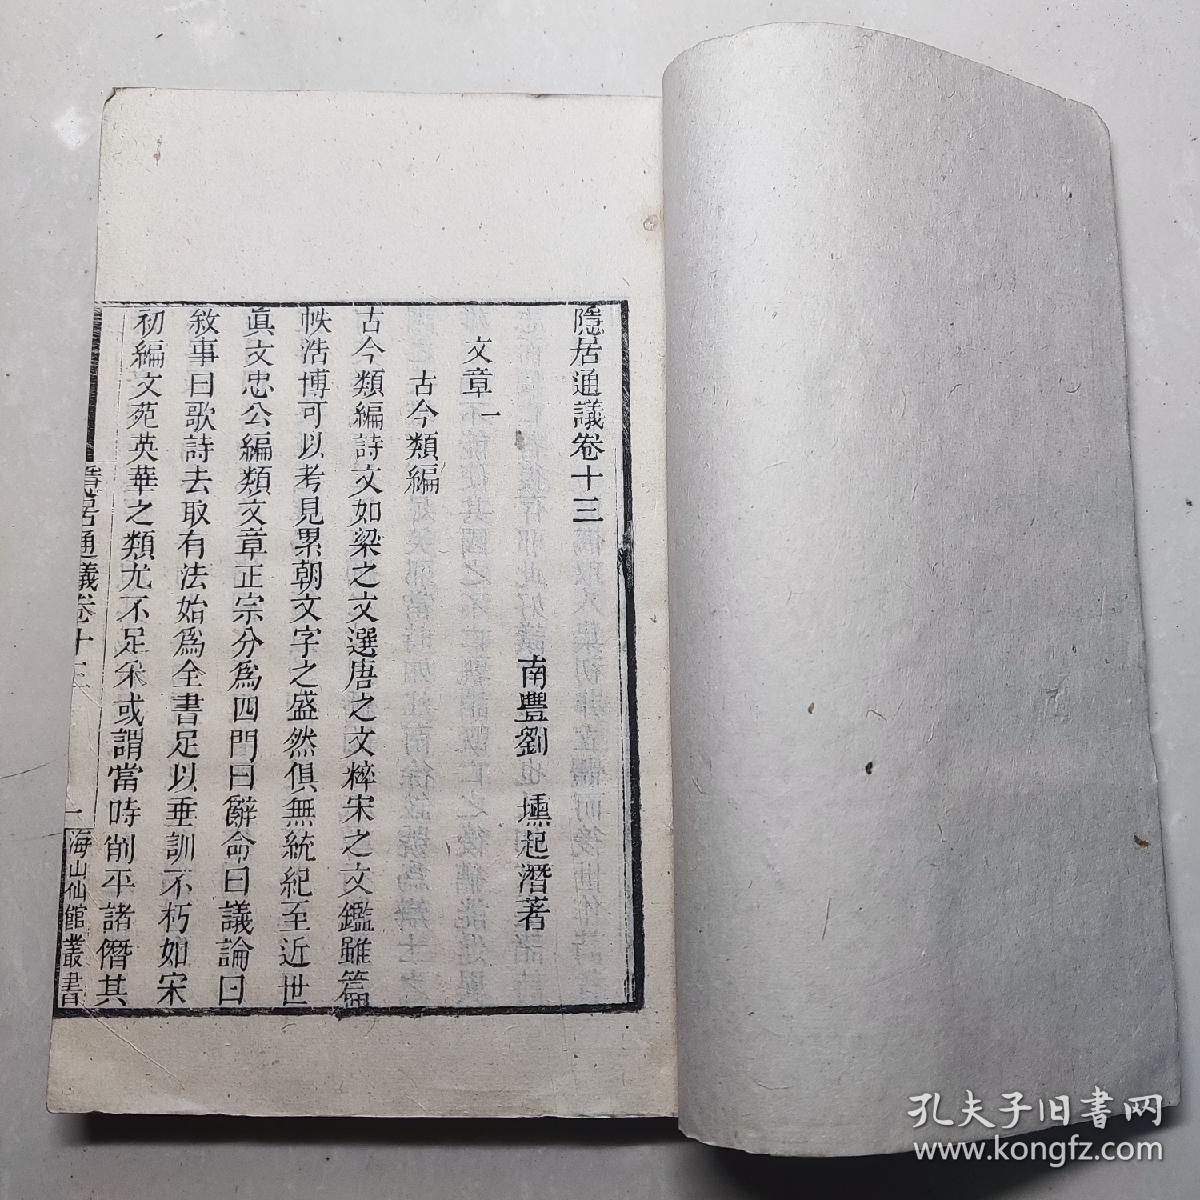 隱居通議卷十三
南豐劉壎起潛著
文章一
古今類編
古今類編詩文如梁之文選唐之文粹宋之文鑑雖篇
帙浩博可以考見累朝文字之盛然俱無統紀至近世
眞文忠公編類文章正宗分爲四門曰辭命曰議論曰
敘事曰歌詩去取有法始爲全書足以垂訓不朽如宋
初編文苑英華之類尤不足采或謂當時削平諸僭其
隱居通議卷十三
一
海山仙館叢書
孔夫子旧书网
www.kongfz.com